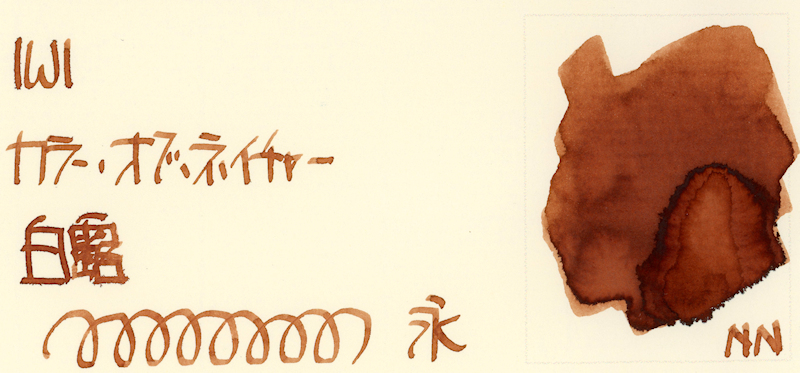 IWI
カラー・オブ・ネイチャー
白露
永
NN